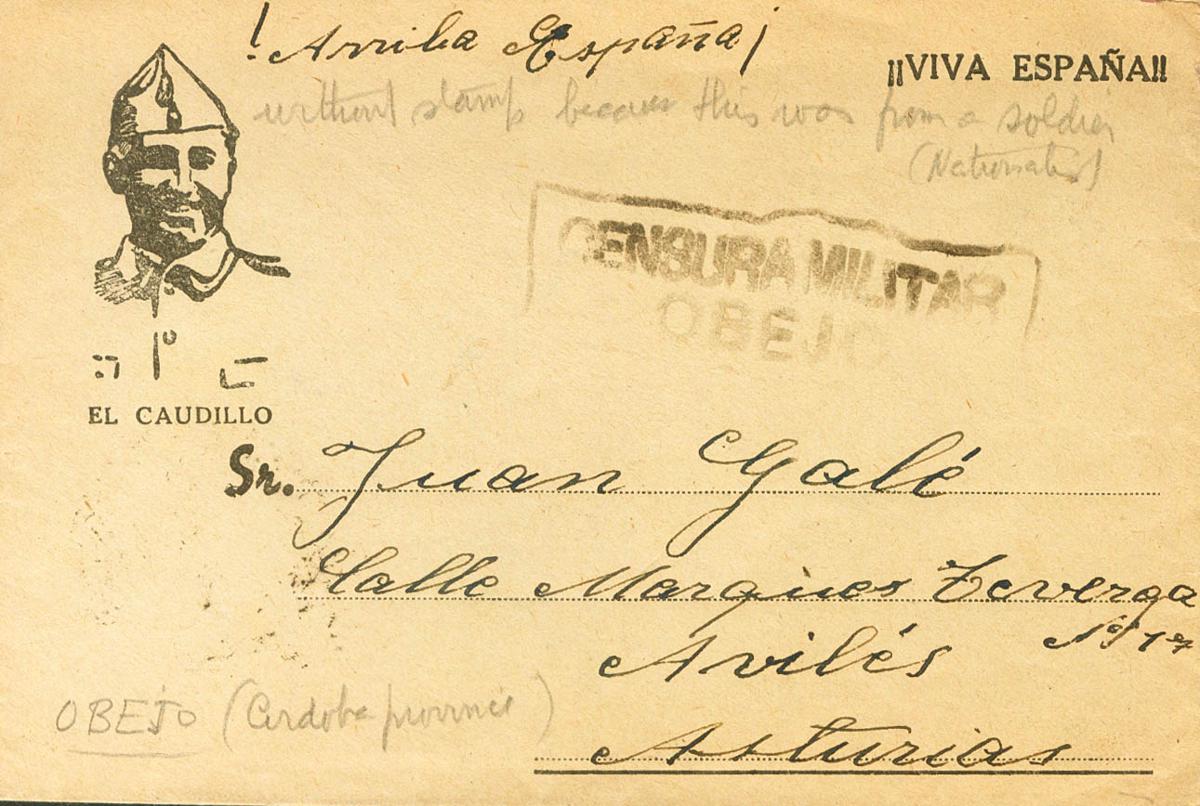 ! Arriba España ¡
¡¡VIVA ESPAÑA!!
without stamp because this was from a soldier
(Nationalist)
CENSURA MILITAR
OBEJO
EL CAUDILLO
Sr. Juan Galé
Calle Marques Teverga
Nº 17
Avilés
OBEJO (Cordoba province)
Asturias